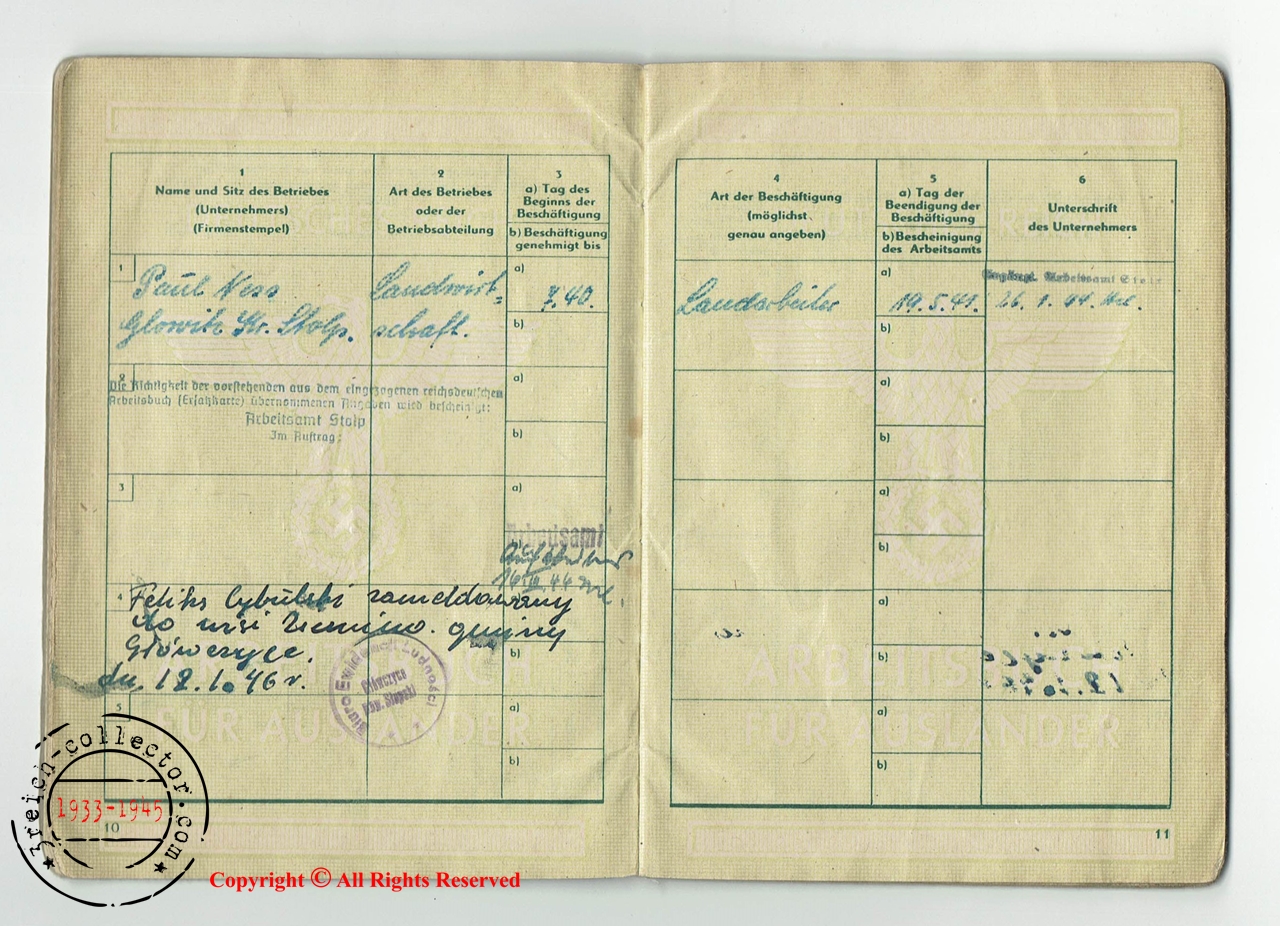 1
Name und Sitz des Betriebes
(Unternehmers)
(Firmenstempel)
2
Art des Betriebes
oder der
Betriebsabteilung
3
a) Tag des
Beginns der
Beschäftigung
b) Beschäftigung
genehmigt bis
1
Paul Ness
Glowitz Kr. Stolp.
Landwirt=
schaft.
a)
7.40.
b)
2
Die Richtigkeit der vorstehenden aus dem eingezogenen reichsdeutschen
Arbeitsbuch (Ersatzkarte) übernommenen Angaben wird bescheinigt:
Arbeitsamt Stolp
Im Auftrag:
a)
b)
3
a)
Arbeitsamt
4
Feliks Cybulski zameldowany
do wsi gminy
Główczyce.
dn. 18.1.46 r.
Biuro Ewidencji Ludności
Główczyce
pow. Słupski
b)
5
a)
b)
ARBEITSBUCH
FÜR AUSLÄNDER
10
4
Art der Beschäftigung
(möglichst
genau angeben)
5
a) Tag der
Beendigung der
Beschäftigung
b) Bescheinigung
des Arbeitsamts
6
Unterschrift
des Unternehmers
Landarbeiter
a)
19.5.41.
Arbeitsamt Stolp
26.1.44
b)
a)
b)
a)
b)
a)
b)
a)
b)
FÜR AUSLÄNDER
11
3reich-collector.com
1933-1945
Copyright © All Rights Reserved